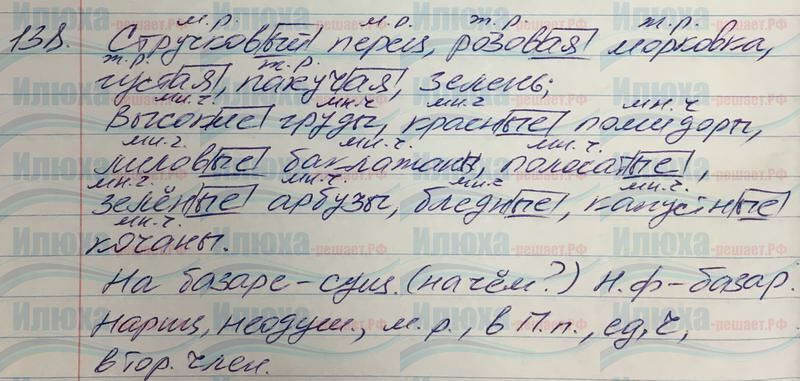 м.р. м.р. ж.р. ж.р.
138. Стручковый перец, розовая морковка,
ж.р. ж.р.
густая, пахучая, зелень;
мн.ч. мн.ч мн.ч мн.ч
Высокие груды, красные помидоры,
мн.ч. мн.ч. мн.ч.
лиловые баклажаны, полосатые,
мн.ч. мн.ч. мн.ч мн.ч.
зелёные арбузы, бледные, капустные
мн.ч.
кочаны.
На базаре - сущ. (на чём?) Н.ф - базар.
нариц, неодуш., м.р., в П.п., ед.ч,
втор. член.
Илюха-решает.РФ